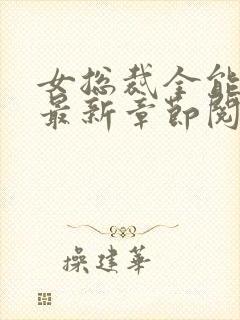 女总裁全能
最新章节阅
操建华